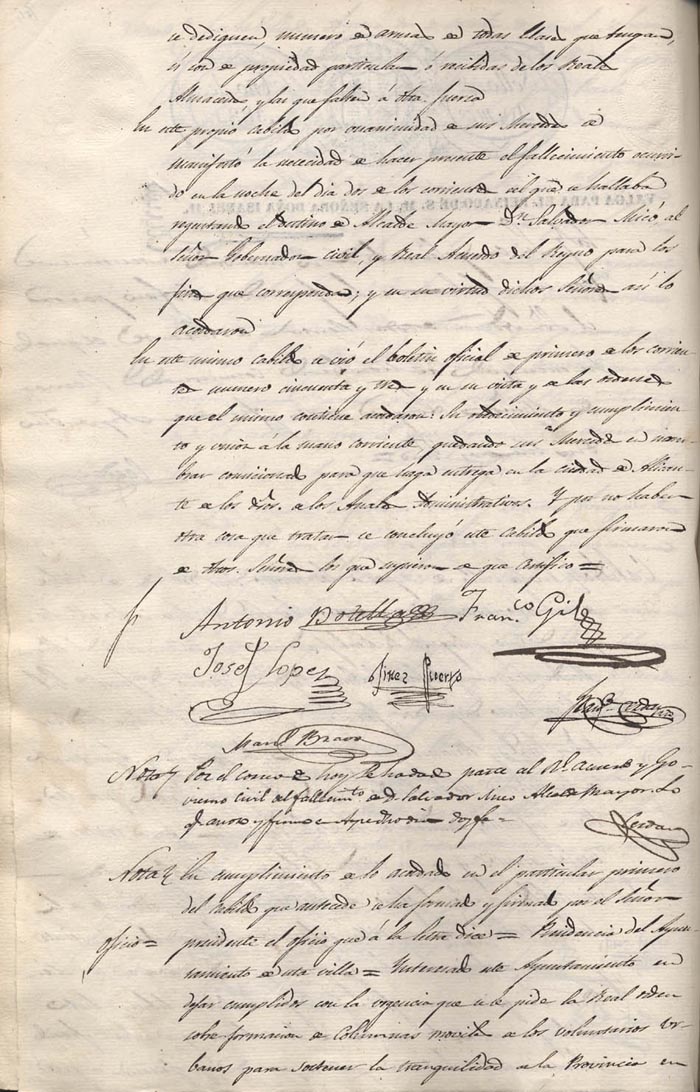 se dediquen, numero de armas de todas clases que tengan,
si son de propiedad particular ó recibidas de los Reales
Almacenes, y las que falten á dha. fuerza
En este propio cabildo por unanimidad de sus Mercedes se
manifestó la necesidad de hacer presente el fallecimiento ocurri-
do en la noche del dia dos de los corrientes del que se hallaba
regentando el destino de Alcalde Mayor Dn. Salvador Micó al
Señor Gobernador civil, y Real Acuerdo del Reyno para los
fines que corresponden; y en su virtud dichos Señores asi lo
acordaron
En este mismo cabildo se vió el boletin oficial de primero de los corrien-
tes numero cincuenta y tres y en su vista y de las ordenes
que el mismo contiene acordaron: Su obedecimiento y cumplimien-
to y union á la mano corriente quedando sus Mercedes en nom-
brar comisionado para que haga entrega en la ciudad de Alican-
te de los dros. de los Anales Administrativos. Y por no haber
otra cosa que tratar se concluyó este cabildo que firmaron
de dhos. Señores los que supieron de que certifico =
Antonio Botella Franco. Gil
José Lopez Ginez Puerto
Manl. Bravo
Nota Por el correo de hoy se ha dado parte al Rl. acuerdo y Go-
vierno Civil del fallecimto. de D. Salvador Mico Alcalde Mayor. Lo
Nota En cumplimiento de lo acordado en el particular primero
del cabildo que antecede se ha formado y firmado por el Señor
oficio = presidente el oficio que á la letra dice = Presidencia del Ayun-
tamiento de esta villa = Interesado este Ayuntamiento en
dejar cumplidos con la urgencia que se pide la Real orden
sobre formacion de Columnas moviles de los voluntarios ur-
banos para sostener la tranquilidad de la Provincia en
VALGA PARA EL REINADO DE S. M. LA SEÑORA DOÑA ISABEL II.